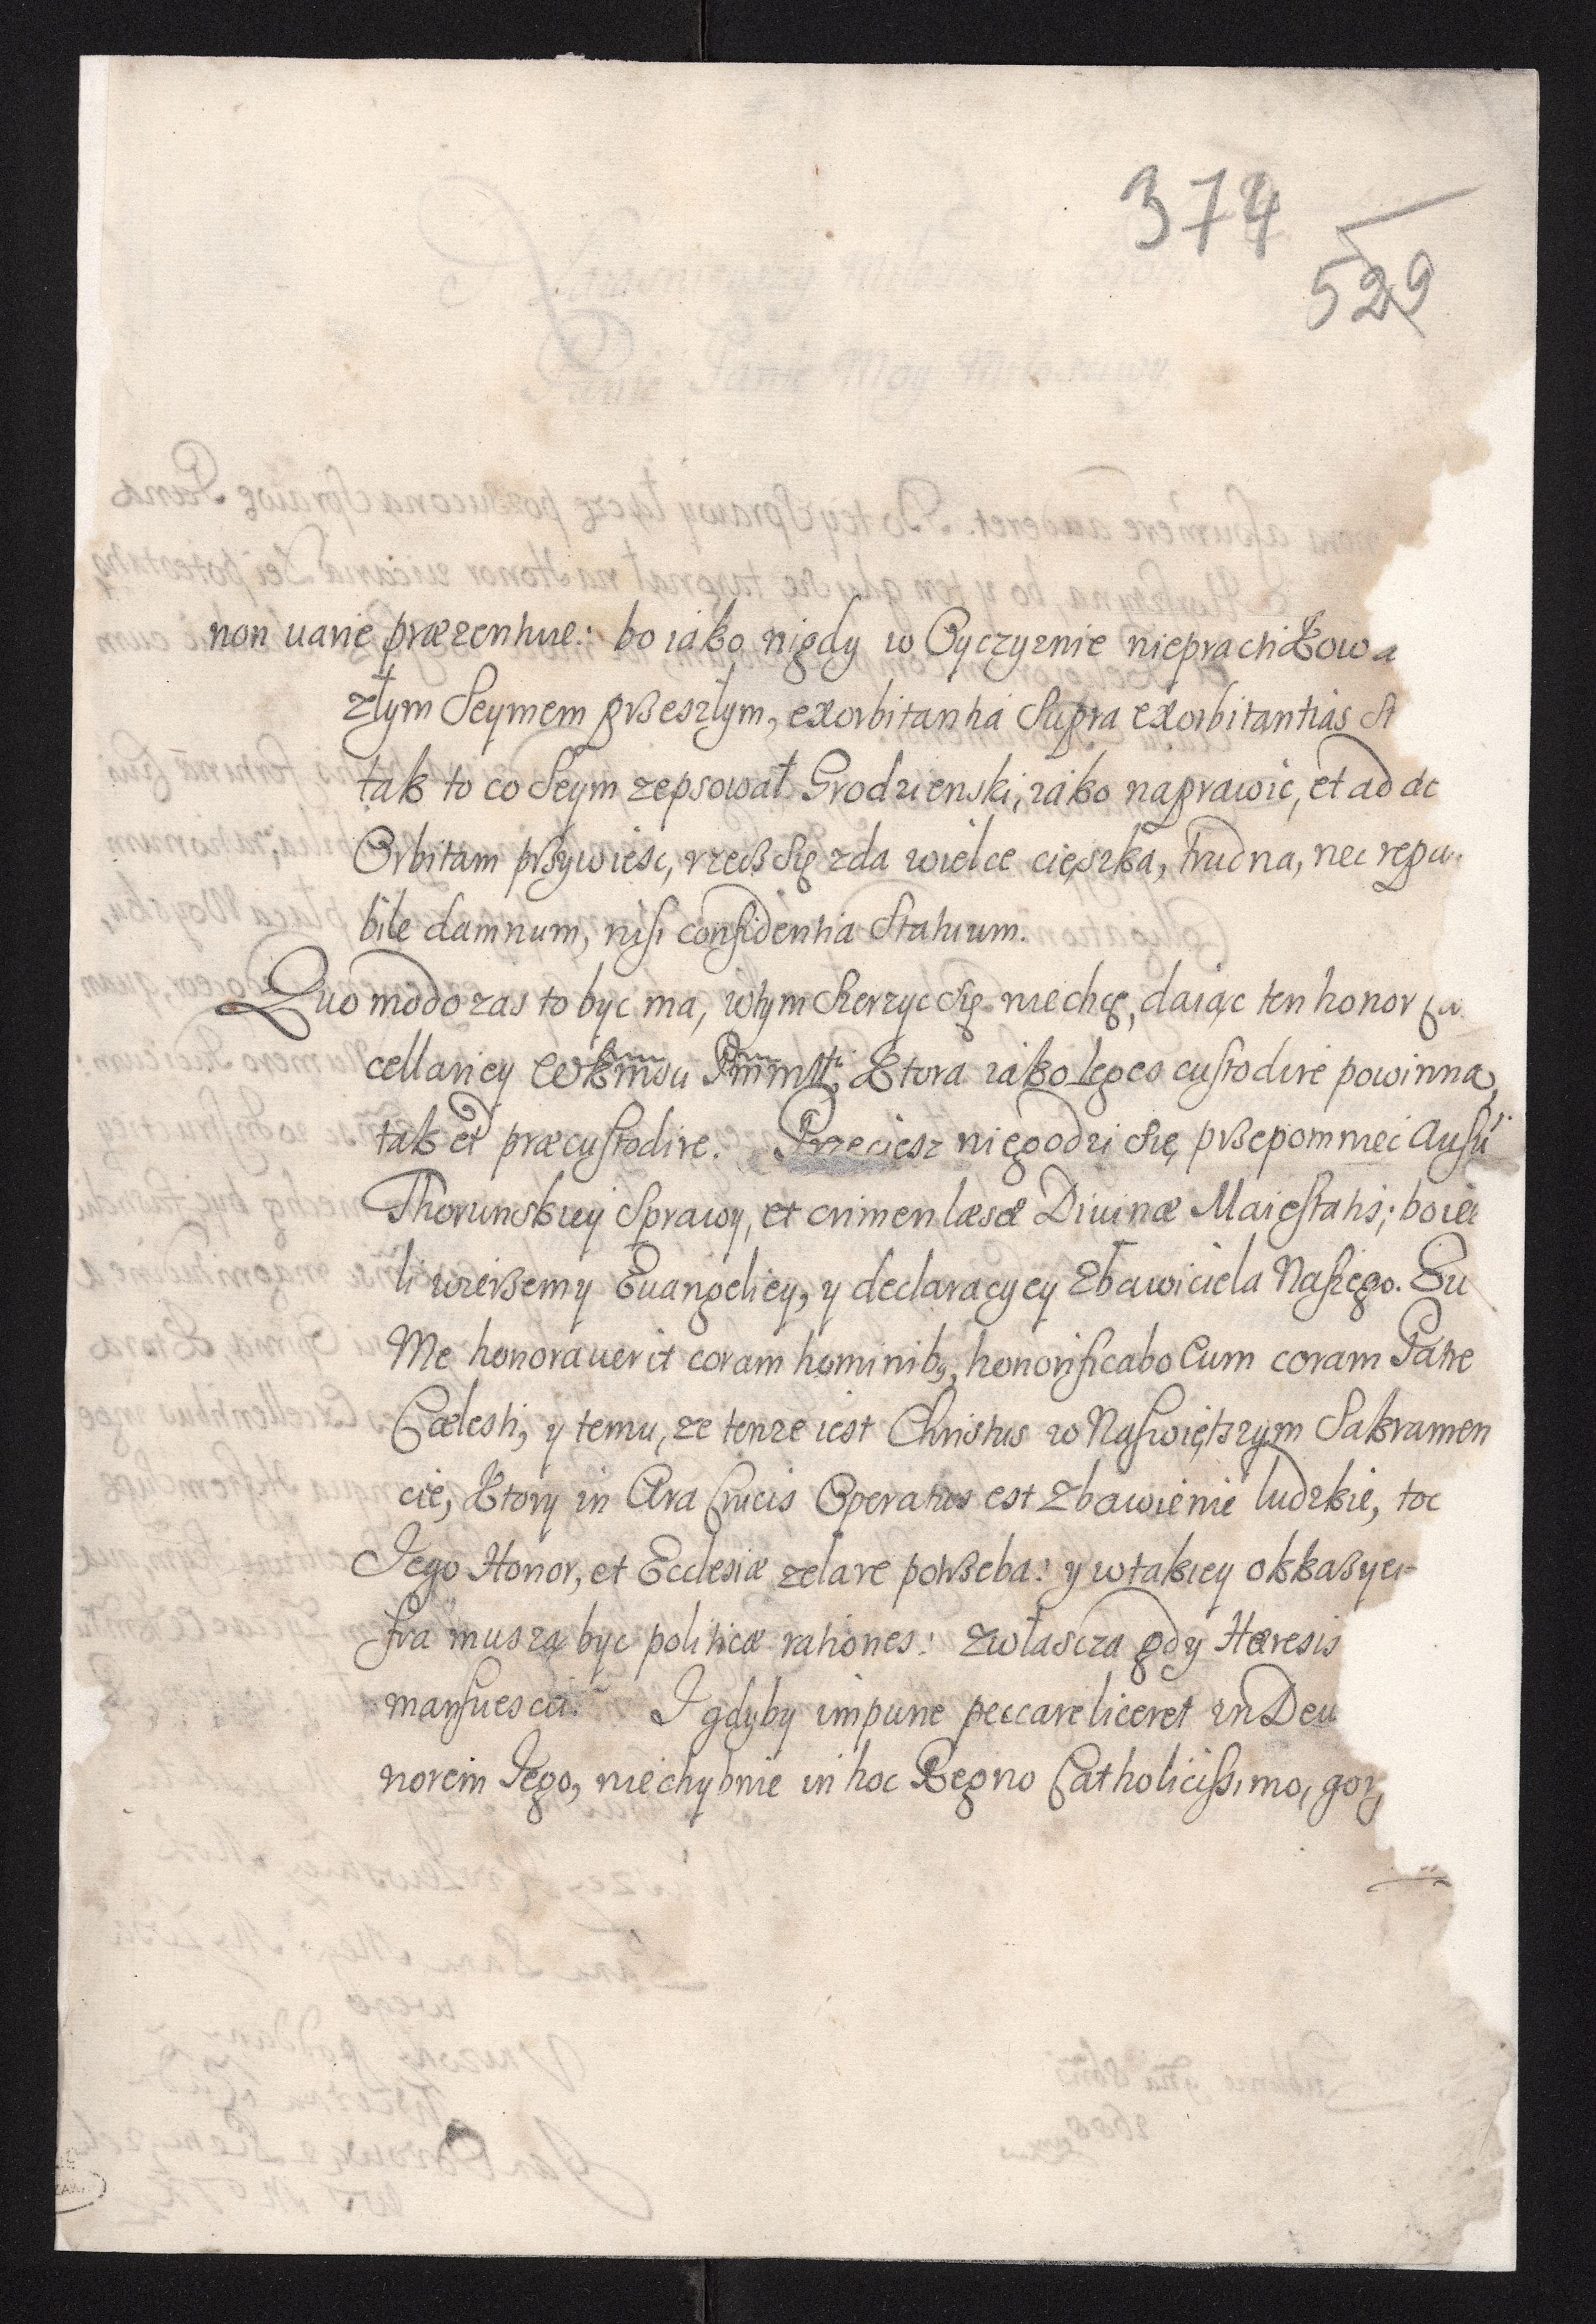 374
529
non uane præzentuie: bo iako nigdy w Oyczyznie niepractikowa
złym Seymem przeszłym, exorbitantia supra exorbitantias st
tak to co Seym zepsował Grodzienski, iako naprawic, et ad de
Orbitam przywiesc, rzecz się zda wielce cięszka, trudna, nec repa
bile damnum, nisi confidentia Statuum.
Quo modo zas to byc ma, wtym szerzyc się niechcę, daiąc ten honor
cellariey Ktora iako leges custodire powinna,
tak et præcustodire. Przeciesz niegodzi się przepomniec Ausū
Thorunskiey Sprawy, et crimen læsæ Diuinæ Maiestatis; bo ie
li wierzemy Euangeliey, y declaracyey Zbawiciela Naszego. Qu
Me honorauerit coram hominibꝫ, honorificabo Eum coram Patre
Cælesti, y temu, ze tenze iest Christus w Naswiętszym Sakramen
cie, Ktory in Ara Crucis Operatus est Zbawienie ludzkie, toc
Iego Honor, et Ecclesiæ zelare potrzeba: y wtakiey okkazyei
fra muszą byc politicæ rationes: zwłascza gdy Hæresis
mansuesci. I gdyby impune peccare liceret in Deu
norem Iego, niechybnie in hoc Regno Catholicissimo, gorz